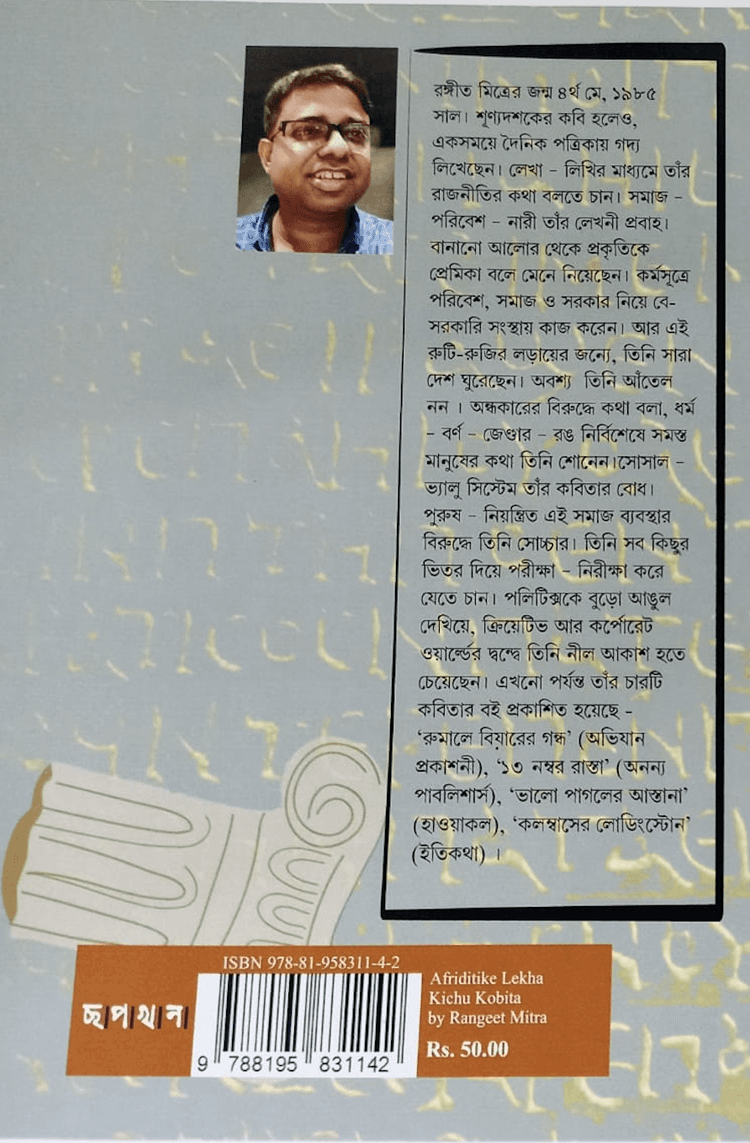 রঙ্গীত মিত্রের জন্ম ৪র্থ মে, ১৯৮৫
সাল। শূণ্যদশকের কবি হলেও,
একসময়ে দৈনিক পত্রিকায় গদ্য
লিখেছেন। লেখা – লিখির মাধ্যমে তাঁর
রাজনীতির কথা বলতে চান। সমাজ –
পরিবেশ – নারী তাঁর লেখনী প্রবাহ।
বানানো আলোর থেকে প্রকৃতিকে
প্রেমিকা বলে মেনে নিয়েছেন। কর্মসূত্রে
পরিবেশ, সমাজ ও সরকার নিয়ে বে-
সরকারি সংস্থায় কাজ করেন। আর এই
রুটি-রুজির লড়ায়ের জন্যে, তিনি সারা
দেশ ঘুরেছেন। অবশ্য তিনি আঁতেল
নন । অন্ধকারের বিরুদ্ধে কথা বলা, ধর্ম
– বর্ণ – জেণ্ডার – রঙ নির্বিশেষে সমস্ত
মানুষের কথা তিনি শোনেন।সোসাল –
ভ্যালু সিস্টেম তাঁর কবিতার বোধ।
পুরুষ – নিয়ন্ত্রিত এই সমাজ ব্যবস্থার
বিরুদ্ধে তিনি সোচ্চার। তিনি সব কিছুর
ভিতর দিয়ে পরীক্ষা – নিরীক্ষা করে
যেতে চান। পলিটিক্সকে বুড়ো আঙুল
দেখিয়ে, ক্রিয়েটিভ আর কর্পোরেট
ওয়ার্ল্ডের দ্বন্দ্বে তিনি নীল আকাশ হতে
চেয়েছেন। এখনো পর্যন্ত তাঁর চারটি
কবিতার বই প্রকাশিত হয়েছে –
‘রুমালে বিয়ারের গন্ধ’ (অভিযান
প্রকাশনী), ‘১৩ নম্বর রাস্তা’ (অনন্য
পাবলিশার্স), ‘ভালো পাগলের আস্তানা’
(হাওয়াকল), ‘কলম্বাসের লোডিংস্টোন’
(ইতিকথা) ।
ISBN 978-81-958311-4-2
ছাপাখানা
9 788195 831142
Afriditike Lekha
Kichu Kobita
by Rangeet Mitra
Rs. 50.00